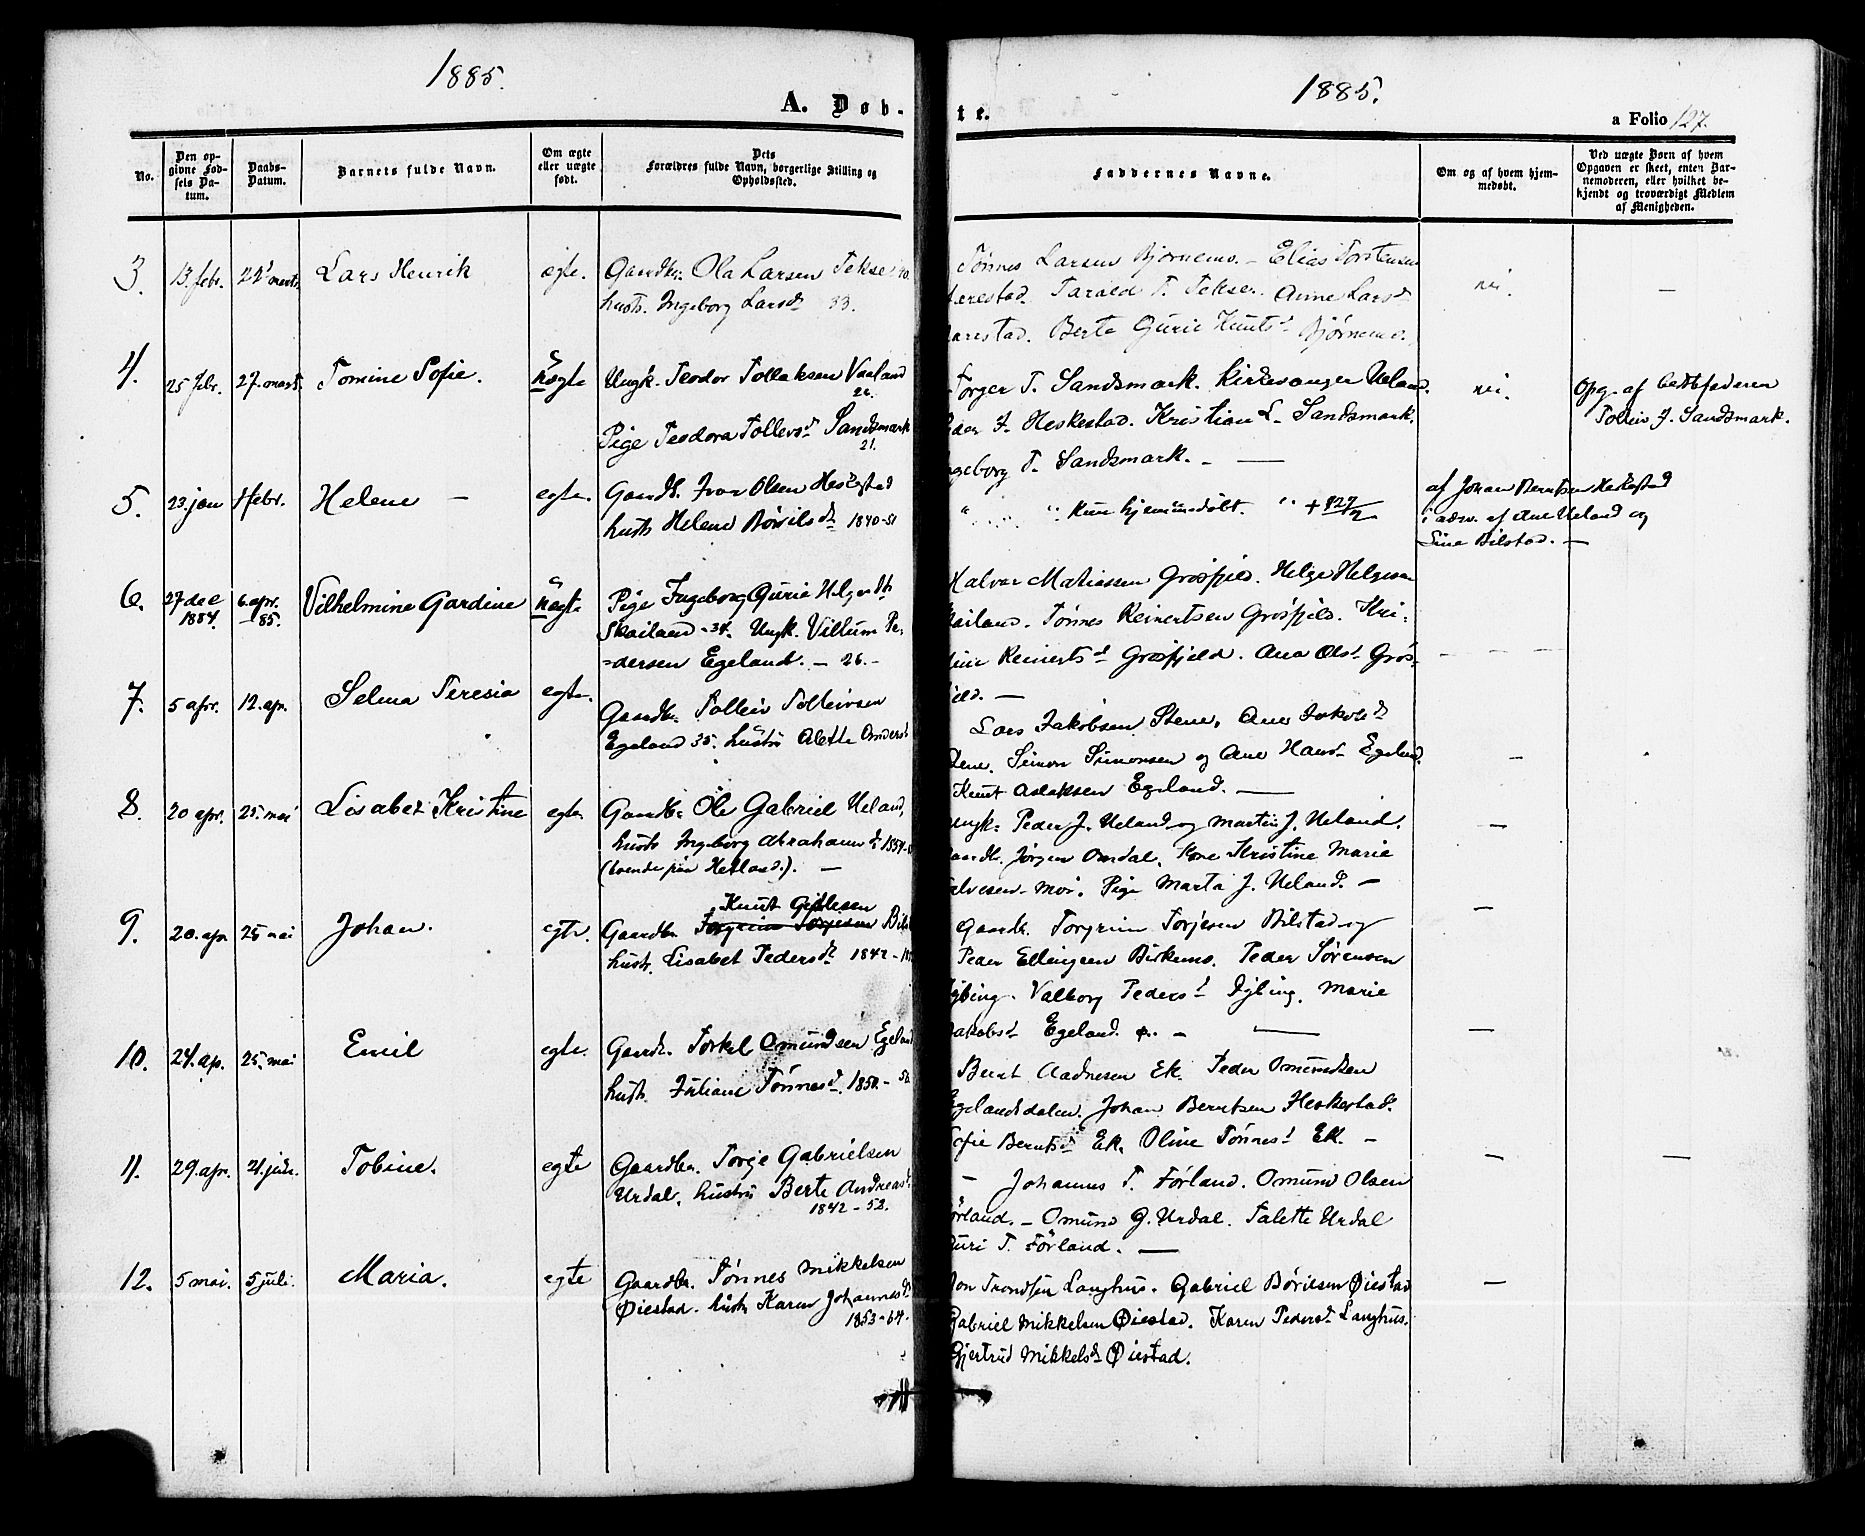 1885.
1885.
A. Døb-
te.
a Folio 127.
No.
Den op-
givne Fød-
sels Da-
tum.
Daabs-
Datum.
Barnets fulde Navn.
Om ægte
eller uægte
født.
Dets
Forældres fulde Navn, borgerlige Stilling og
Opholdssted.
Faddernes Navne.
Om og af hvem hjem-
medøbt.
Ved uægte Børn af hvem
Opgaven er skeet, enten Bar-
nemoderen, eller hvilket be-
kjendt og troværdigt Medlem
af Menigheden.
3. 13. febr. 22' marts. Lars Henrik egte. Gaardbr. Ola Larsen Tekse
hustr. Ingeborg Larsd. 33.
Tønnes Larsen Bjørnemo. - Elias Torstensen
Tarald T. Tekse. Anne Larsd
Berte Gurie Knutsd Bjørnemo.
nei. —
4. 25 febr. 27. marts. Tomine Sofie. uegte Ungk. Teodor Tollaksen Vaaland
26.
Pige Teodora Tollevsd Sandsmark
21.
Torger T. Sandsmark. Kirkesanger Ueland.
Heskestad. Kristian L. Sandsmark.
Ingeborg T. Sandsmark. - —
nei.
Opg. af bedstfaderen
Tolleiv J. Sandsmark.
5. 23. jan 1 febr. Helene - egte. Gaardb. Ivar Olsen Heskestad
hustr Helene Børrilsd. 1840-51
" " Kun hjemmedøbt. "
af Johan Berntsen Heskestad
i overv. af Ane Ueland og
Sine Bilstad. —
6. 27 dec
1884. 6. apr.
85. Vilhelmine Gardine uegte Pige Ingeborg Gurie Helgesdtr
Skailand - 34. Ungk. Villum Pe-
-dersen Egeland. - 26. -
Halvor Matiassen Grøsfjeld. Helge Helgesen
Skailand. Tønnes Reinertsen Grøsfjeld. Kri-
stine Reinertsd Grøsfjeld. Ana Olsd Grøs-
fjeld. —
- - -
7. 5 apr. 12. ap. Selma Teresia egte. Gaardbr. Tolleiv Tolleivsen
Egeland 35. hustru Alette Omdersd
Lars Jakobsen Stene, Ane Jakobsd
Stene. Simon Simonsen og Ane Hansd Egeland.
Knut Aslaksen Egeland. —
—
8. 20 apr. 25. mai Lisabet Kristine egte. Gaardbr. Ole Gabriel Ueland,
hustr Ingeborg Abrahamsd.
(boende paa Hetland). —
Ungk. Peder J. Ueland og Martin J. Ueland.
Gaardb. Jørgen Omdal. Kone Kristine Marie
Salvesen-Moi. Pige Marta J. Ueland. -
—
9. 20. ap 25 mai Johan. egte. Knut Gitlesen
Gaardbr Torgrim Torjesen
hustr. Lisabet Pedersd. 1842-
Gaardb. Torgrim Torjesen Bilstad og
Peder Ellingsen Birkemo. Peder Sørensen
Dybing. Valborg Pedersd Dybing. Marie
Jakobsd Egeland. - —
—
10. 24. ap. 25. mai Emil egte. Gaardb. Torkel Omundsen Egeland
hustr. Juliane Tønnesd. 1850. -
Bernt Aadnesen Ek. Peder Omundsen
Egelandsdalen. Johan Berntsen Heskestad.
Sofie Berntsd Ek. Oline Tønnesd Ek. -
—
11. 29. apr. 21. juni. Tobine. egte Gaardbr. Torje Gabrielsen
Urdal. hustru Berte Andreasd.
1842 - 52.
- Johannes T. Førland. Omund Olsen
Førland. - Omund G. Urdal. Talette Urdal
Guri T. Førland. —
— —
12. 5 mai. 5 juli. Maria. egte Gaardbr. Tønnes Mikkelsen
Øiestad. hustr Karen Johannesd.
1853-64.
Jon Trondsen Langhus. Gabriel Børilsen Øiestad
Gabriel Mikkelsen Øiestad. Karen Pedersd Langhus.
Gjertrud Mikkelsd Øiestad.
—